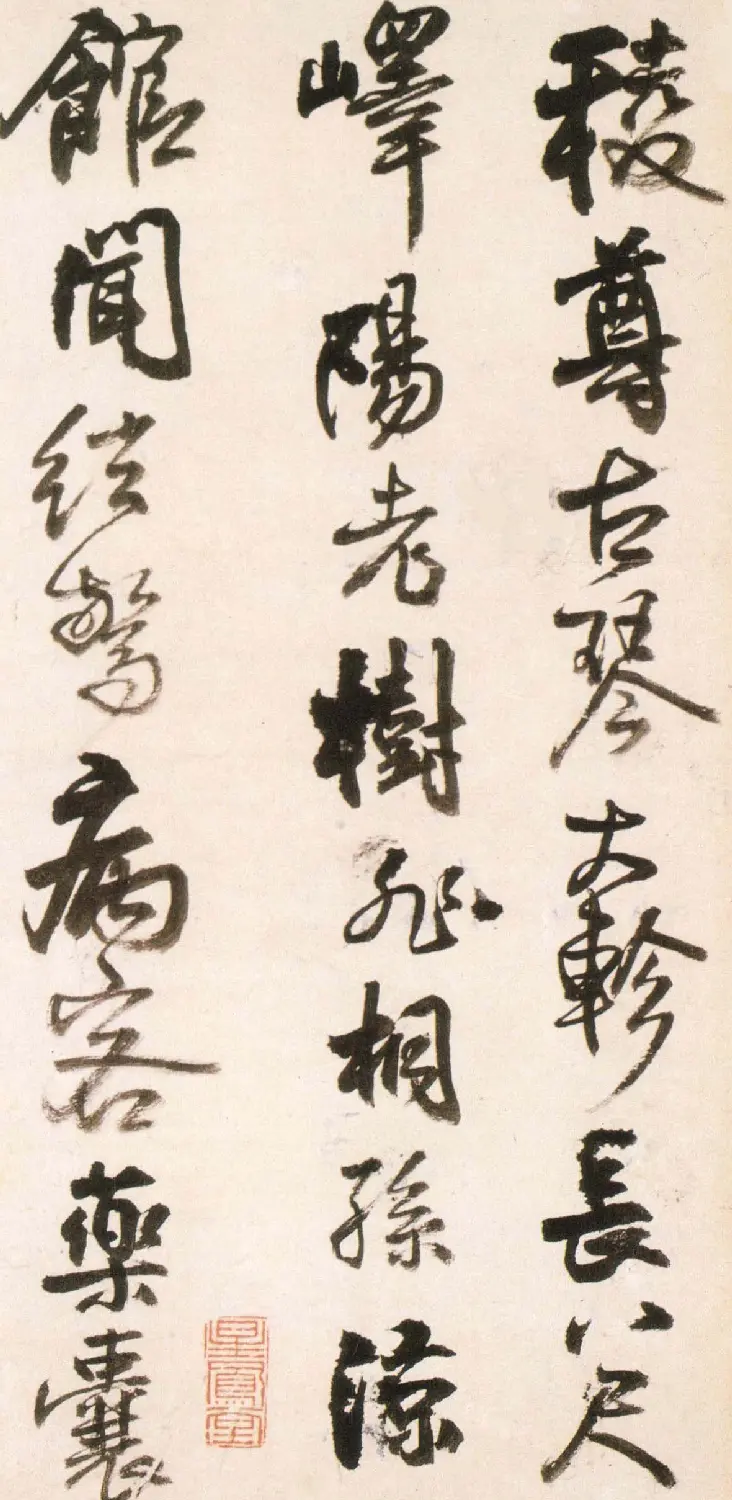 稜尊古琴大軫長八尺
嶧陽老樹非桐孫涼
館聞絃驚病客藥囊